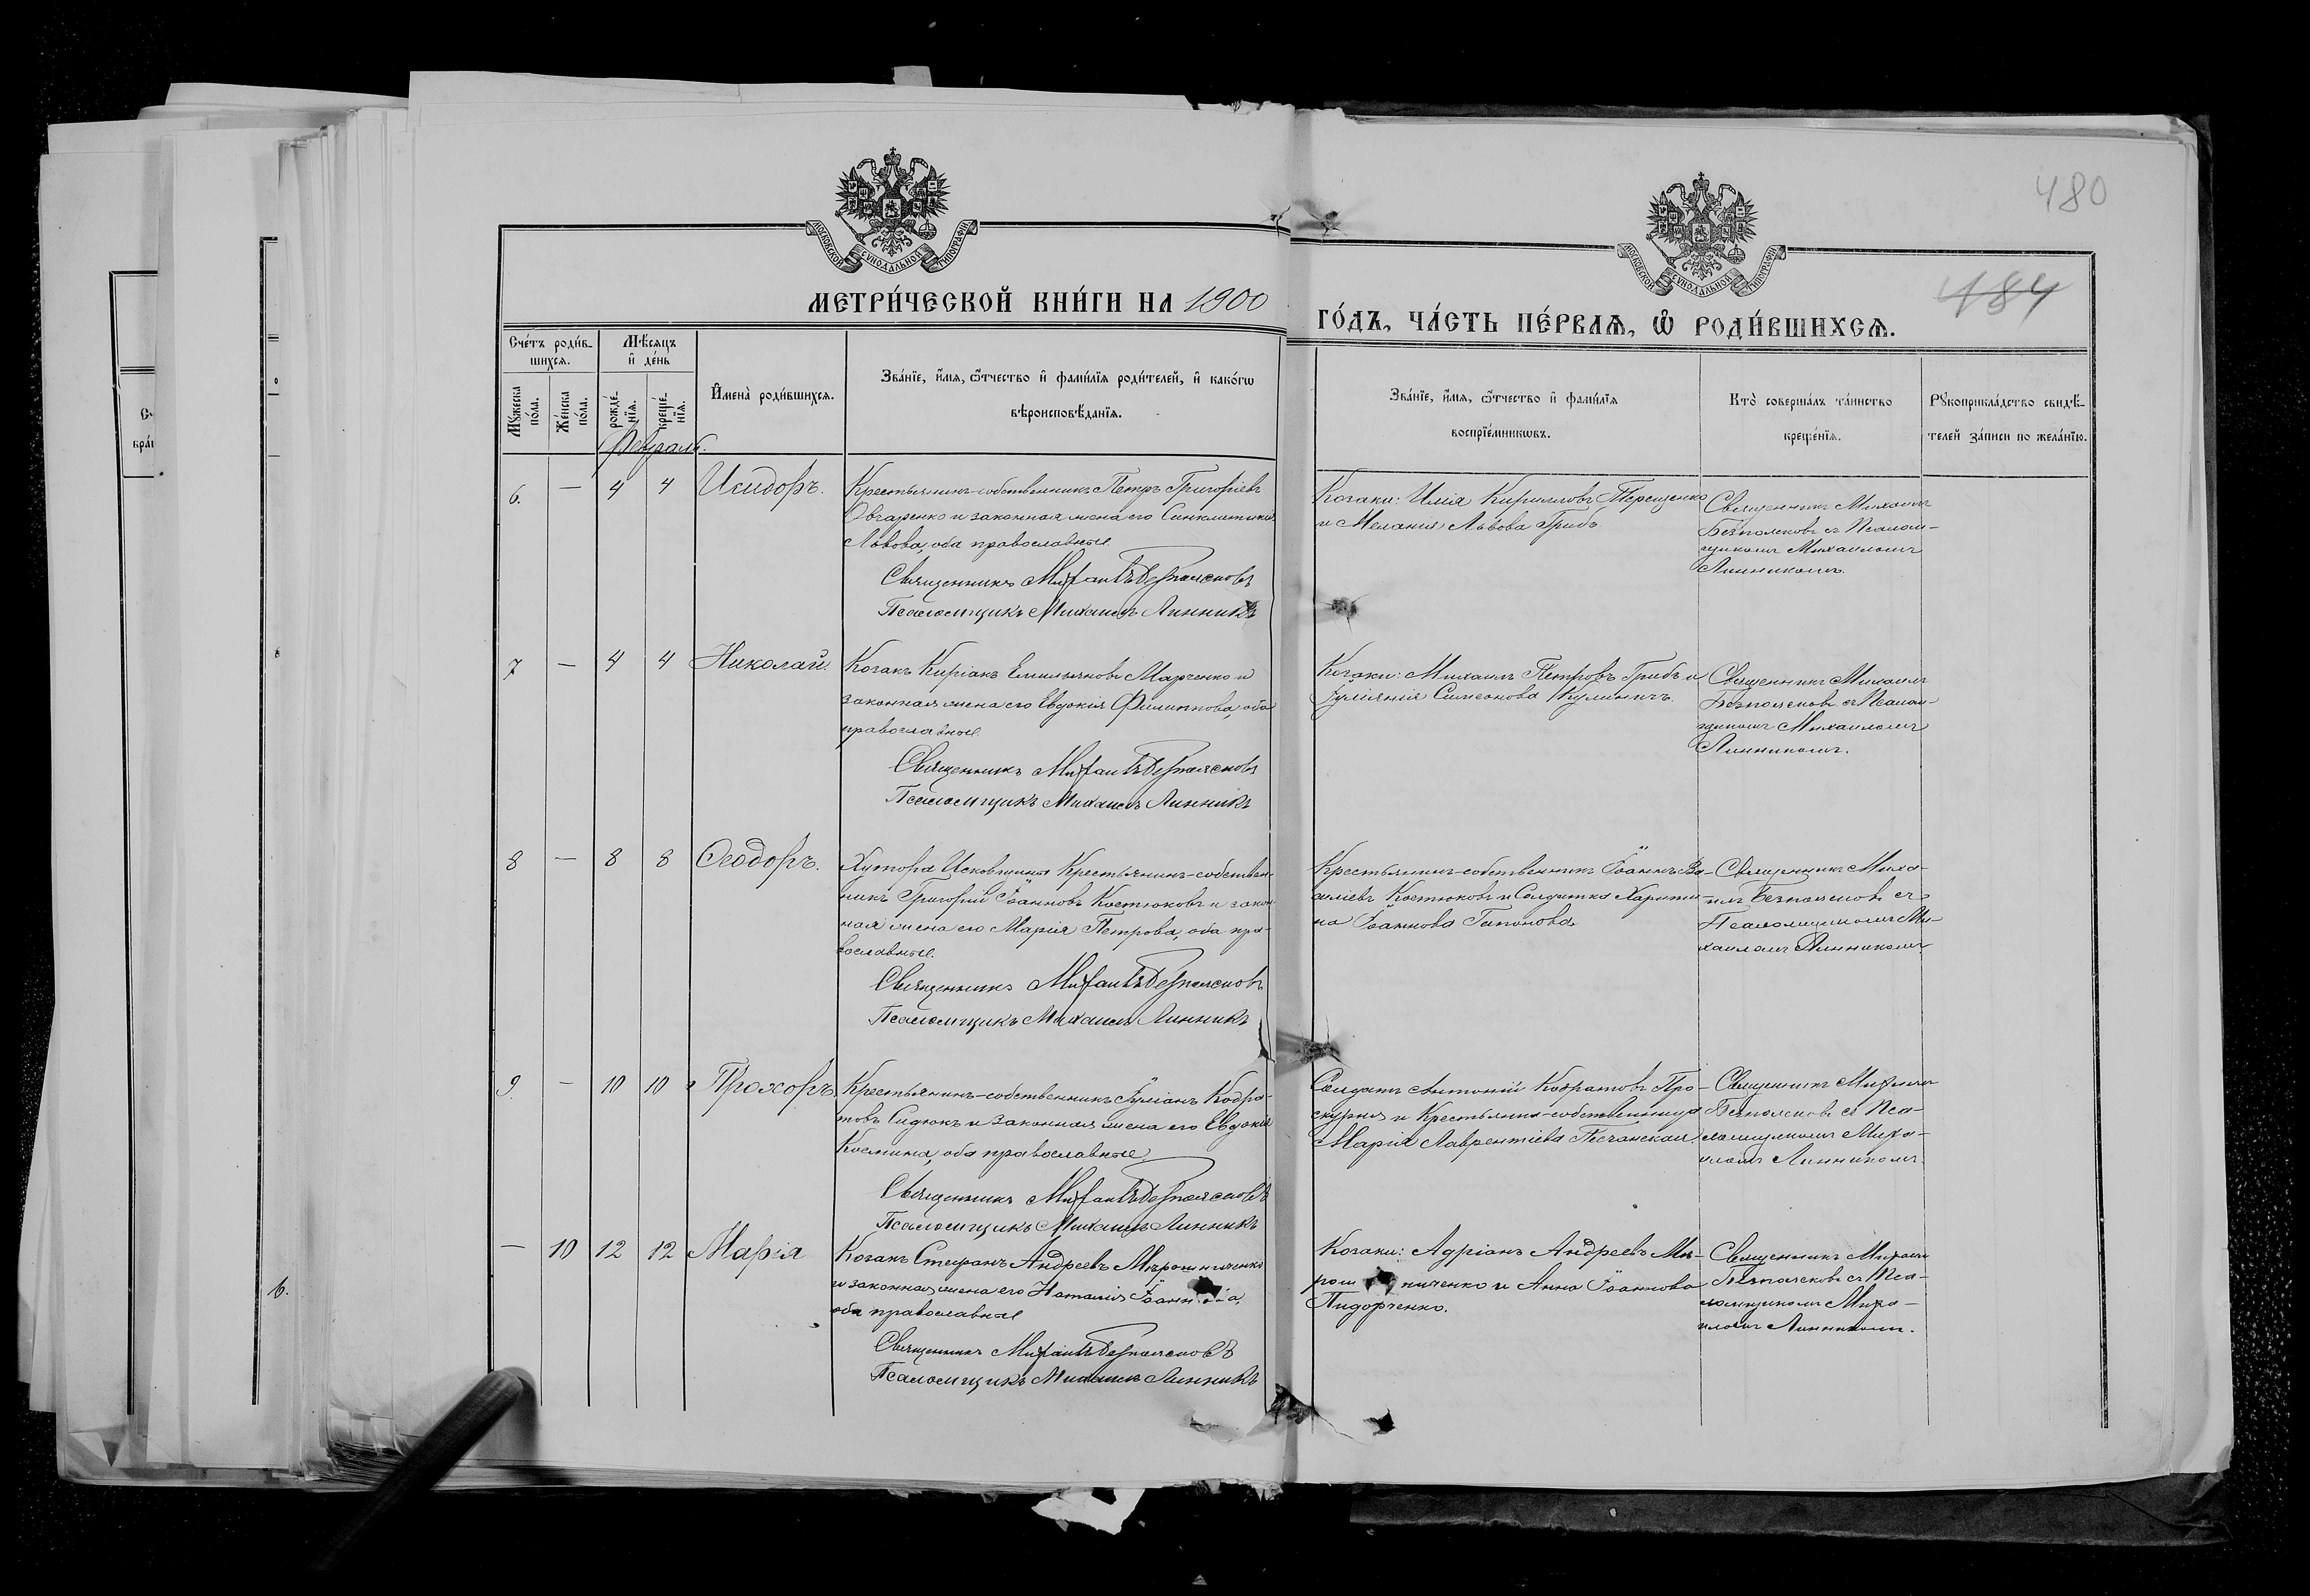 480
484
МОСКОВСКОЙ СУНОДАЛЬНОЙ ТИПОГРАФІИ
МОСКОВСКОЙ СУНОДАЛЬНОЙ ТИПОГРАФІИ
МЕТРИ́ЧЕСКОЙ КНИ́ГИ НА 1900
ГО́ДЪ, ЧА́СТЬ ПЕ́РВАѦ, Ѡ҆ РОДИ́ВШИХСѦ.
Сче́тъ роди́в-
шихсѧ.
Мѣ́сѧцъ
и҆ де́нь
Мꙋ́жеска
по́ла.
Же́нска
по́ла.
рожде́-
нїѧ.
креще́-
нїѧ.
И҆мена̀ роди́вшихсѧ.
Зва́нїе, и҆́мѧ, ѻ҆́тчество и҆ фами́лїѧ роди́телей, и҆ како́гѡ
вѣроисповѣ́данїѧ.
Зва́нїе, и҆́мѧ, ѻ҆́тчество и҆ фами́лїѧ
воспрїе́мникѡвъ.
Кто̀ соверша́лъ та́инство
креще́нїѧ.
Рꙋкоприкла́дство свидѣ́-
телей за́писи по жела́нїю.
Февраль.
6. — 4 4 Исидоръ.
Крестьянинъ-собственникъ Петръ Григоріевъ
Овчаренко и законная жена его Синклитикія
Львова, оба православные.
Священникъ Михаилъ Безпоясковъ
Псаломщикъ Михаилъ Линникъ
Козаки: Илія Кирилловъ Терещенко
и Меланія Львова Грибъ
Священникъ Михаилъ
Безпоясковъ съ Псалом-
щикомъ Михаиломъ
Линникомъ.
7 — 4 4 Николай.
Козакъ Киріакъ Емильяновъ Марченко и
законная жена его Евдокія Филиппова, оба
православные.
Священникъ Михаилъ Безпоясковъ
Псаломщикъ Михаилъ Линникъ
Козаки: Михаилъ Петровъ Грибъ и
Іуліянія Симеонова Кулиничъ.
Священникъ Михаилъ
Безпоясковъ съ Псалом-
щикомъ Михаиломъ
Линникомъ.
8 — 8 8 Ѳеодоръ.
Хутора Исковщины Крестьянинъ-собствен-
никъ Григорій Іоанновъ Костюковъ и закон-
ная жена его Марія Петрова, оба пра-
вославные.
Священникъ Михаилъ Безпоясковъ
Псаломщикъ Михаилъ Линникъ
Крестьянинъ-собственникъ Іоаннъ Ва-
силіевъ Костюковъ и Солдатка Харити-
на Іоаннова Гапонова.
Священникъ Миха-
илъ Безпоясковъ съ
Псаломщикомъ Ми-
хаиломъ Линникомъ.
9. — 10 10 Прохоръ.
Крестьянинъ-собственникъ Іуліанъ Кодра-
товъ Сидюкъ и законная жена его Евдокія
Космина, оба православные.
Священникъ Михаилъ Безпоясковъ
Псаломщикъ Михаилъ Линникъ
Солдатъ Антоній Кодратовъ Про-
скурня и Крестьянка-собственница
Марія Лаврентіева Песчанская.
Священникъ Михаилъ
Безпоясковъ съ Пса-
ломщикомъ Миха-
иломъ Линникомъ.
— 10 12 12 Марія
Козакъ Стефанъ Андреевъ Мирошниченко
и законная жена его Наталія
оба православные
Священникъ Михаилъ Безпоясковъ
Псаломщикъ Михаилъ Линникъ
Козаки: Адріанъ Андреевъ Ми-
рошниченко и Анна Іоаннова
Пидорченко.
Священникъ Михаилъ
Безпоясковъ съ Пса-
ломщикомъ Миха-
иломъ Линникомъ.
6.